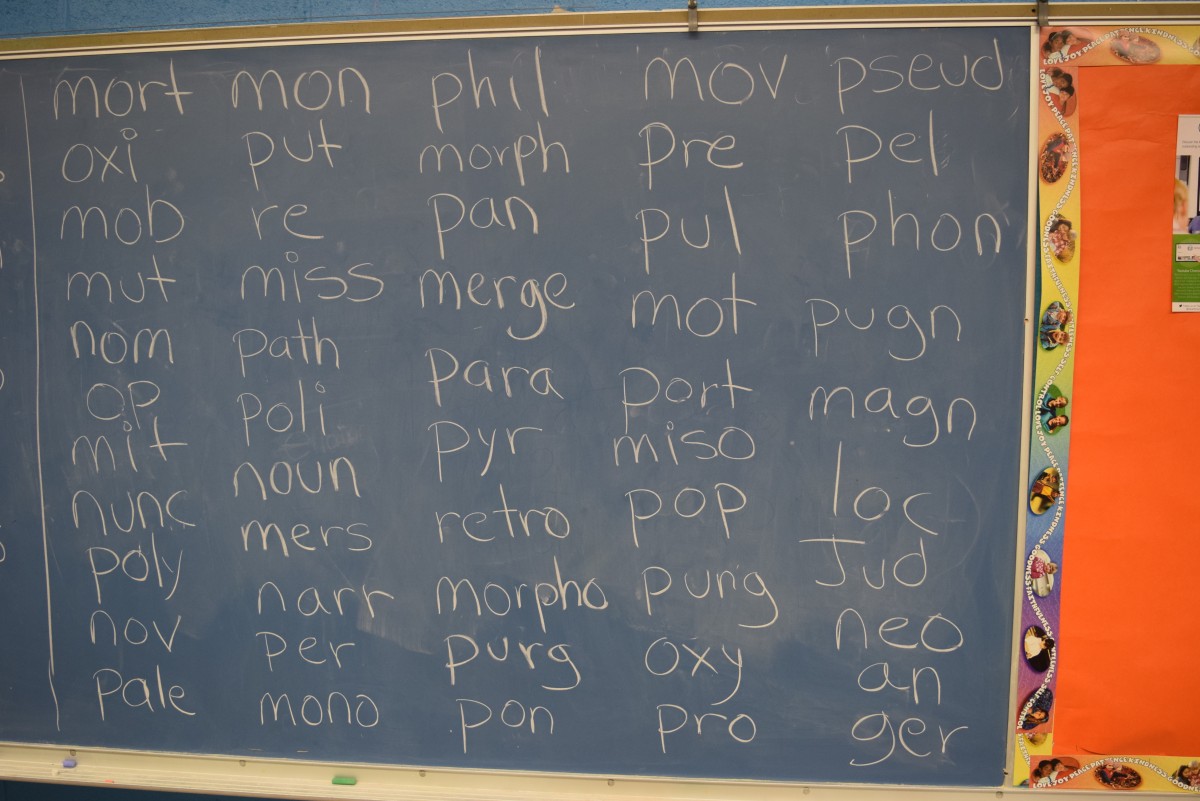 mort
oxi
mob
mut
nom
op
mit
nunc
poly
nov
pale
mon
put
re
miss
path
poli
noun
mers
narr
per
mono
phil
morph
pan
merge
para
pyr
retro
morpho
purg
pon
mov
pre
pul
mot
port
miso
pop
purg
oxy
pro
pseud
pel
phon
pugn
magn
loc
Jud
neo
an
ger